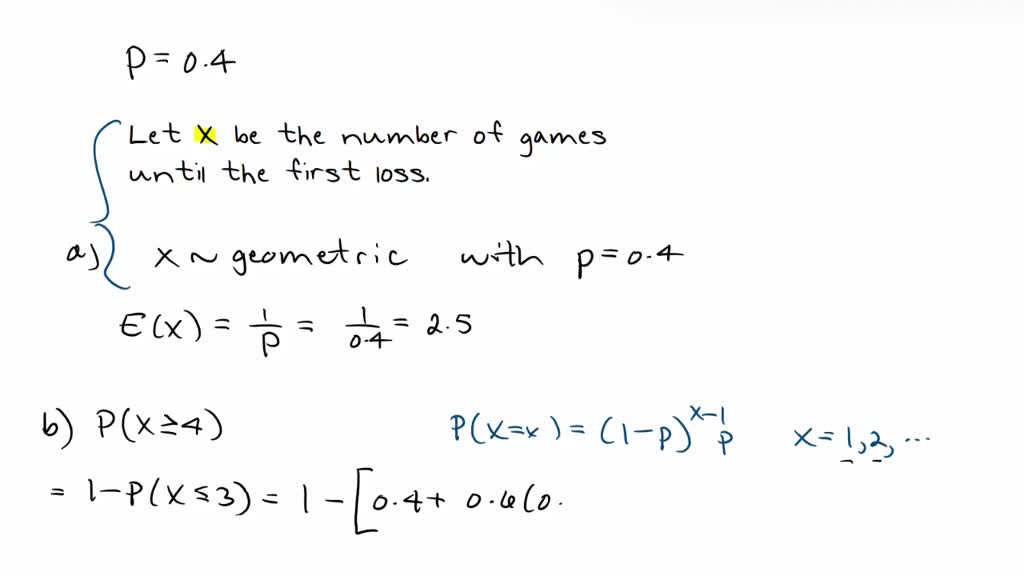 p = 0.4
Let X be the number of games
until the first loss.
a) X ~ geometric with p = 0.4
E(X) = 1/p = 1/0.4 = 2.5
b) P(X ≥ 4) P(X = x) = (1 - p)^{x-1} p x = 1, 2, ...
= 1 - P(X ≤ 3) = 1 - [0.4 + 0.6(0.